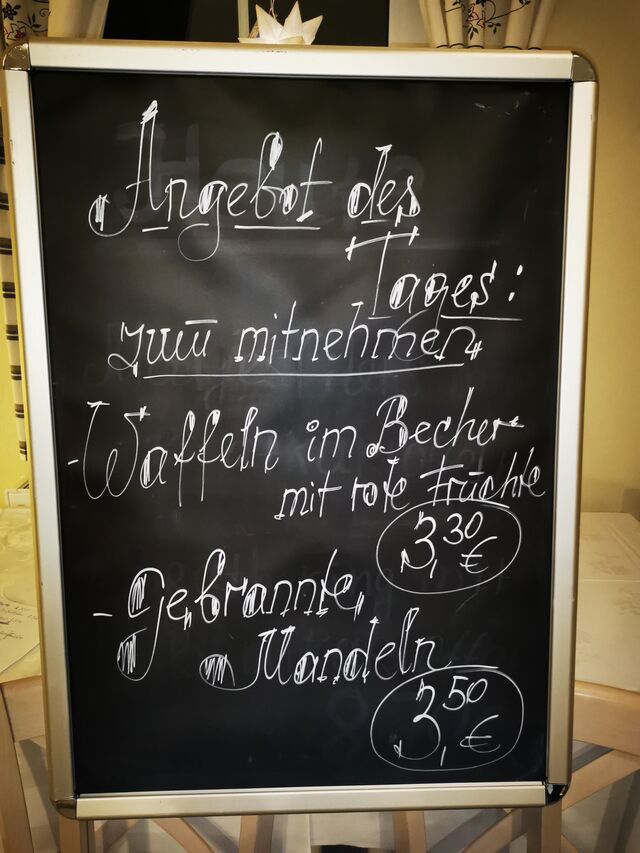 Angebot des
Tages:
zum mitnehmen
- Waffeln im Becher
mit rote Früchte
3,30 €
- Gebrannte
Mandeln
3,50 €